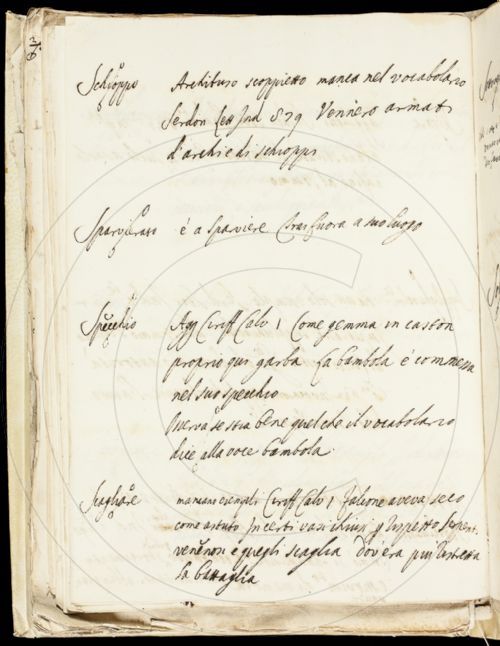 Schioppo Archibuso scoppietto manca nel vocabolario
Serdon Lett Ind 879 Vennero armati
d'archi e di schioppi
Sparvierato é a Sparviere trasfuora a suo luogo
Specchio Agg Ciriff Calv 1 Come gemma in caston
proprio qui garba La bambola é commessa
nel suo specchio
se stia bene quel che il vocabolario
dice alla voce bambola
Scagliare mancano esempli Ciriff Calv 1 Falcone aveva seco
come astuto In certi vasi chiusi p dispetto Serpent
venenosi e quegli scaglia Dov'era piu ristretta
La battaglia